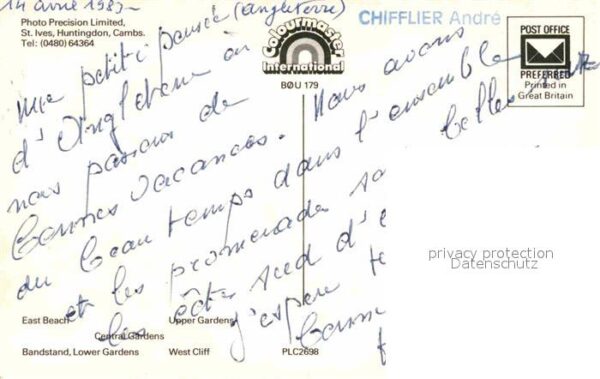 14 avril 1987 (Angleterre)
Photo Precision Limited,
St. Ives, Huntingdon, Cambs.
Tel: (0480) 64364
Colourmaster
International
BØU 179
CHIFFLIER André
POST OFFICE
PREFERRED
Printed in
Great Britain
Une petite pensée
d'Angleterre où
nous passons de
bonnes vacances. Nous avons
du beau temps dans l'ensemble
et les promenades belles
les côtes sud d'
j'espère
privacy protection
Datenschutz
East Beach
Upper Gardens
Central Gardens
Bandstand, Lower Gardens
West Cliff
PLC2698